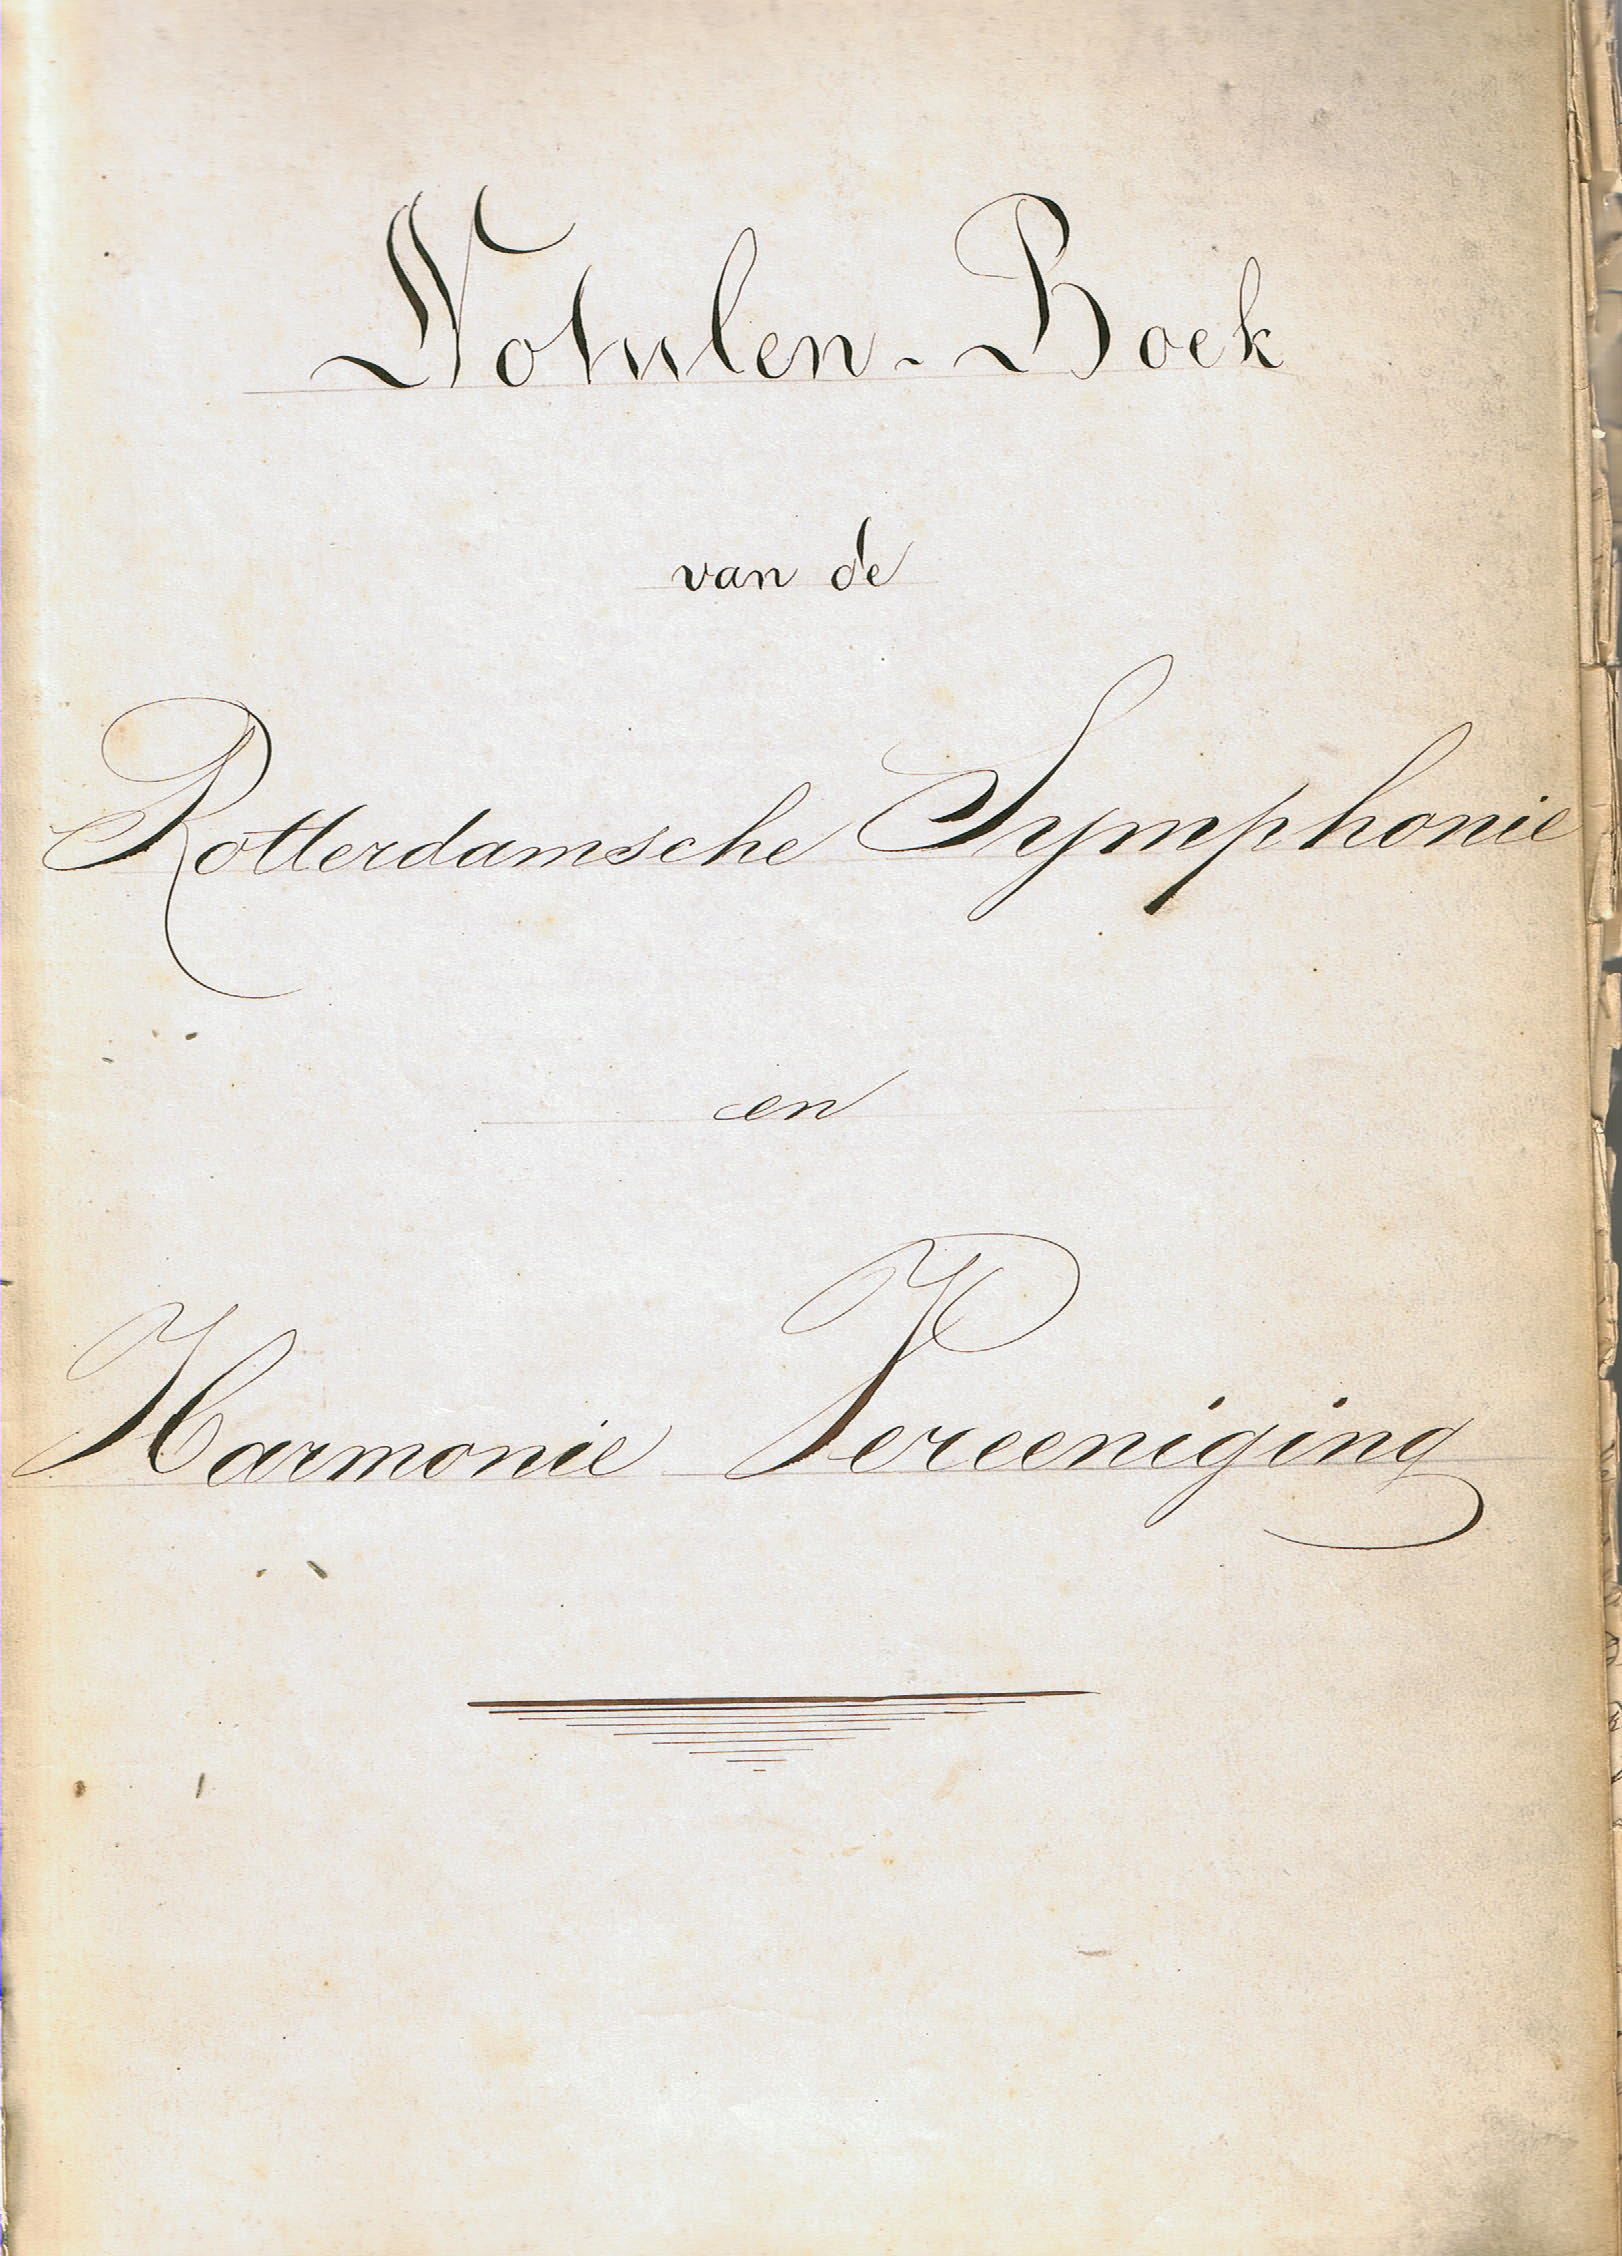 Notulen-Boek
van de
Rotterdamsche Symphonie
en
Harmonie Vereeniging